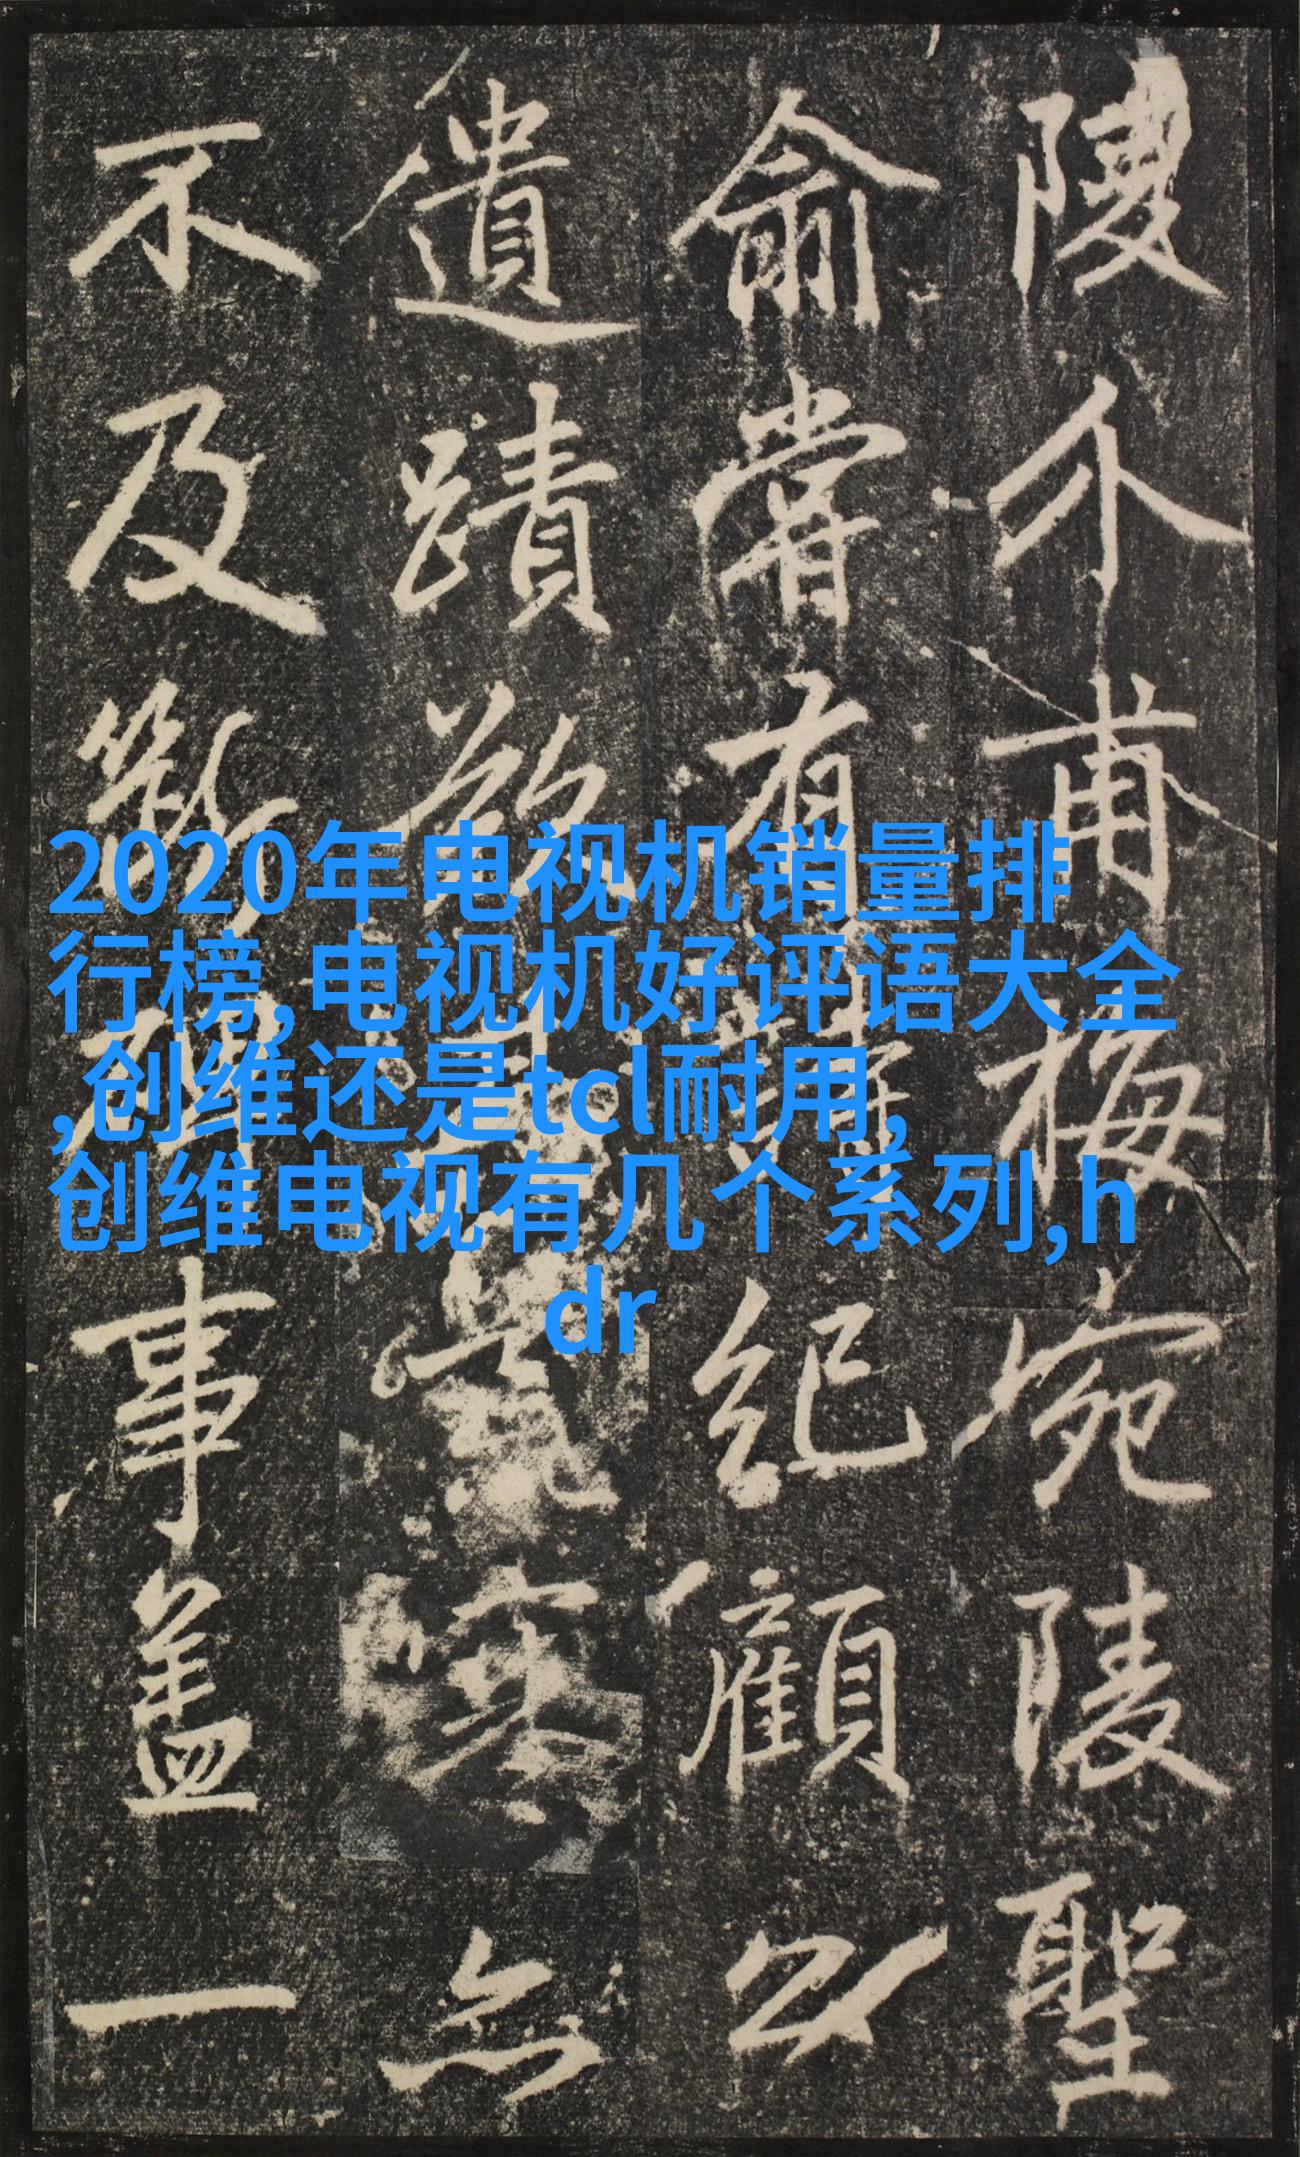 陵介甫梅宛陵聖
俞嘗有紀顧以
遺蹟寒無
不及斷事蓋一
2020年电视机销量排
行榜,电视机好评语大全
,创维还是tcl耐用,
创维电视有几个系列,h
dr